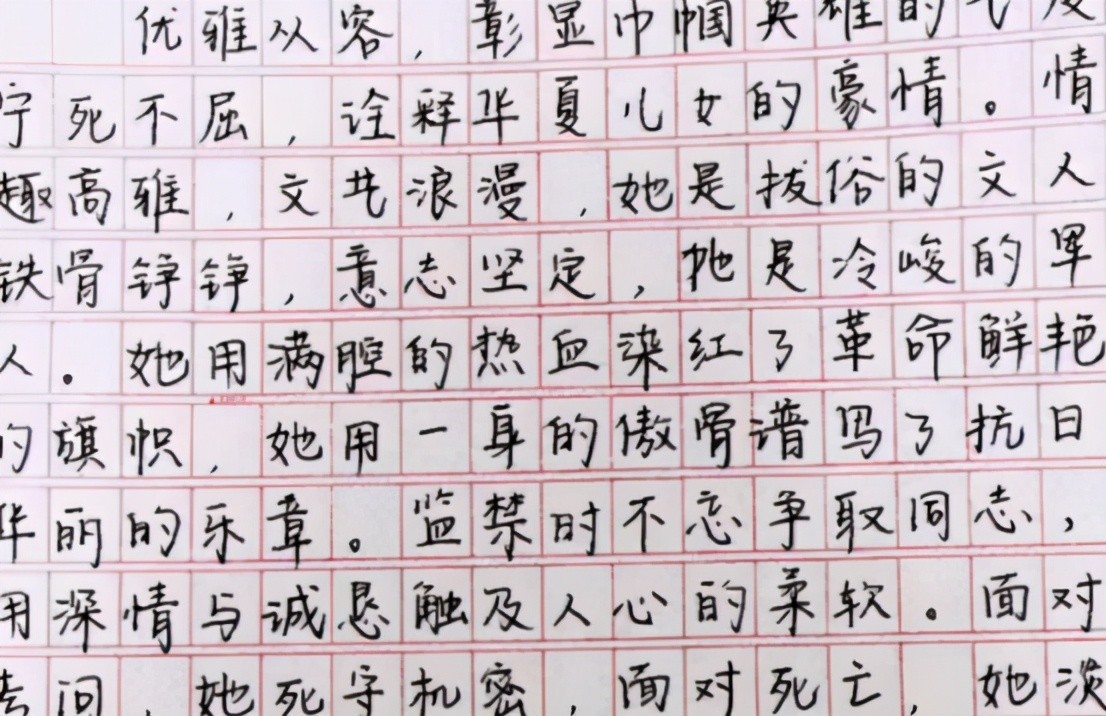 优雅从容，彰显巾帼英雄的气度
宁死不屈，诠释华夏儿女的豪情。情
趣高雅，文艺浪漫，她是拔俗的文人
铁骨铮铮，意志坚定，她是冷峻的军
人．她用满腔的热血染红了革命鲜艳
的旗帜，她用一身的傲骨谱写了抗日
华丽的乐章。监禁时不忘争取同志，
用深情与诚恳触及人心的柔软。面对
拷问，她死守机密，面对死亡，她淡